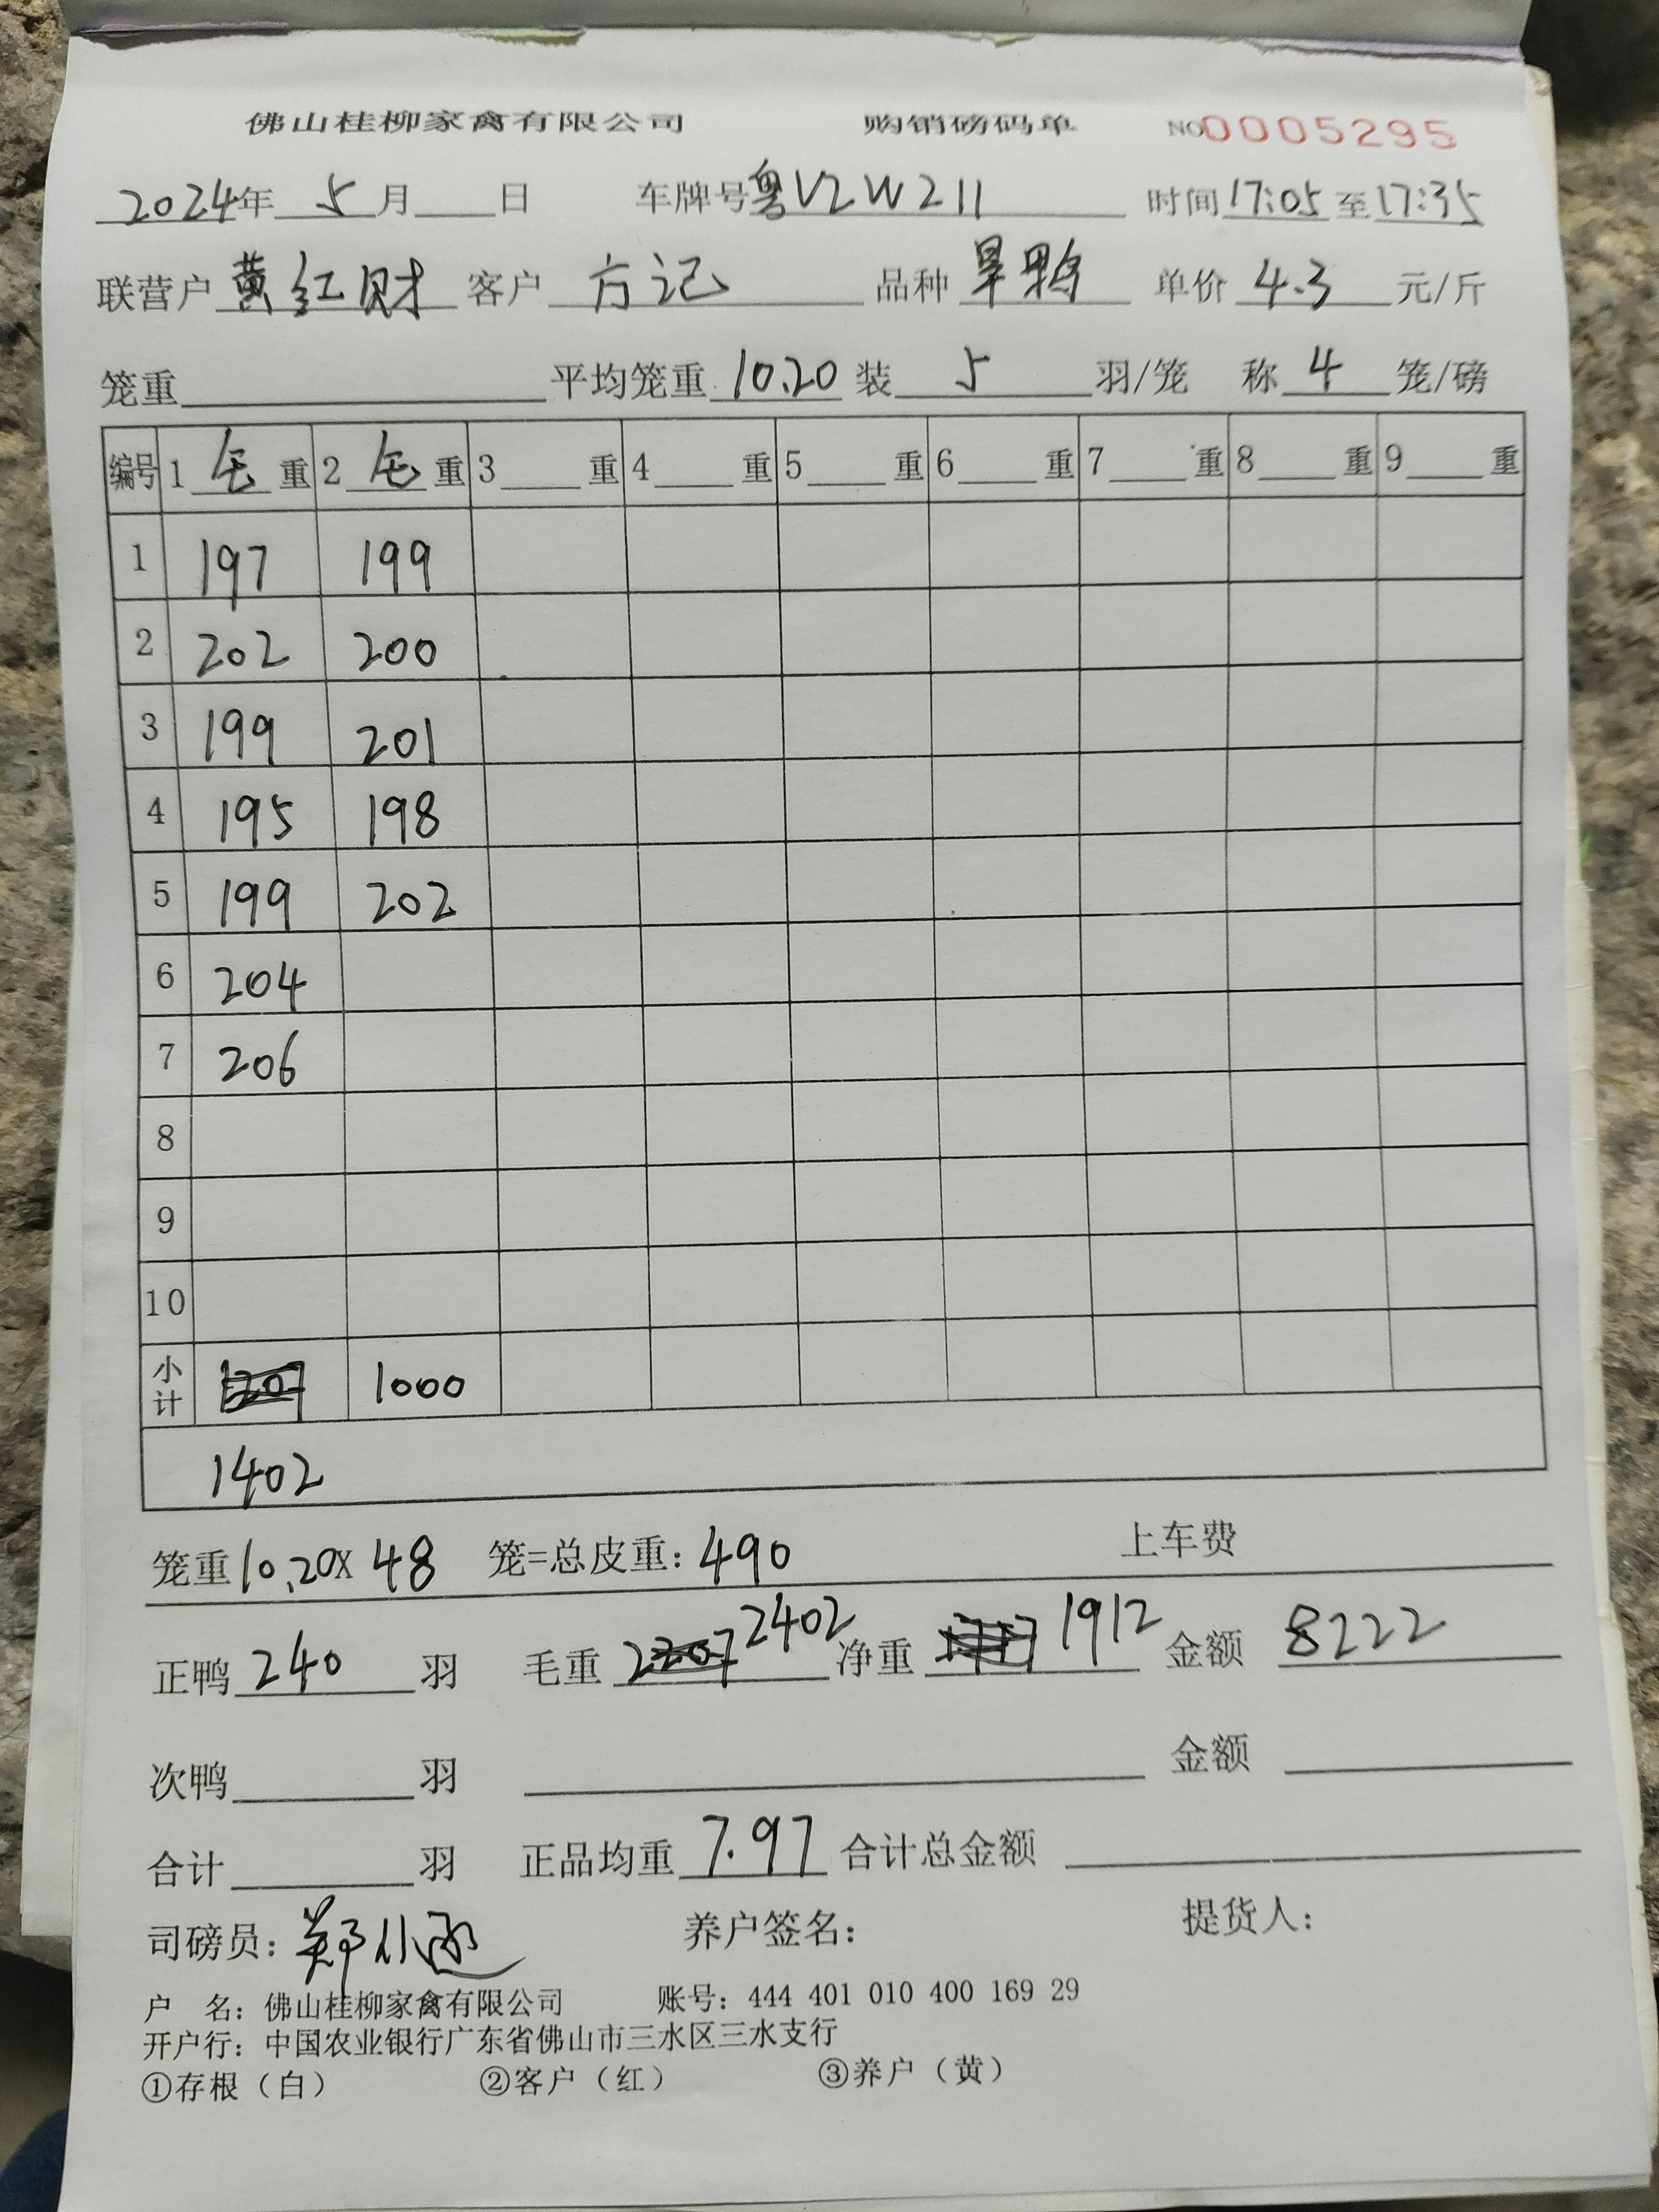 佛山桂柳家禽有限公司 购销磅码单 NO0005295
2024年 5 月 日 车牌号粤VZW211 时间17:05至17:35
联营户 黄红财 客户 方记 品种 旱鸭 单价 4.3 元/斤
笼重 平均笼重 10.20 装 5 羽/笼 称 4 笼/磅
编号 1 毛 重 2 毛 重 3 重 4 重 5 重 6 重 7 重 8 重 9 重
1 197 199
2 202 200
3 199 201
4 195 198
5 199 202
6 204
7 206
8
9
10
小计 1000
1402
笼重10.20X 48 笼=总皮重: 490 上车费
正鸭 240 羽 毛重 2402 净重 1912 金额 8222
次鸭 羽 金额
合计 羽 正品均重 7.97 合计总金额
司磅员: 郑 养户签名: 提货人:
户 名: 佛山桂柳家禽有限公司 账号: 444 401 010 400 169 29
开户行: 中国农业银行广东省佛山市三水区三水支行
①存根(白) ②客户(红) ③养户(黄)